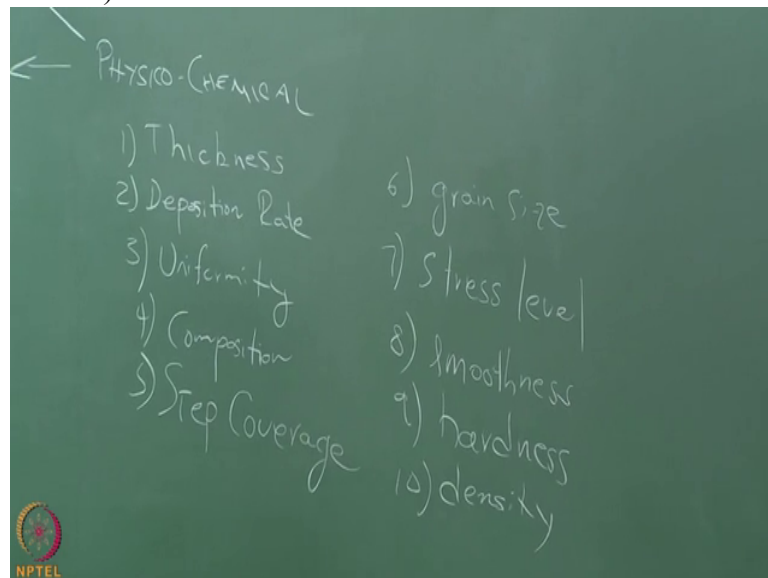 PHYSICO-CHEMICAL
1) Thickness
2) Deposition Rate
3) Uniformity
4) Composition
5) Step Coverage
6) grain size
7) Stress level
8) smoothness
9) hardness
10) density
NPTEL